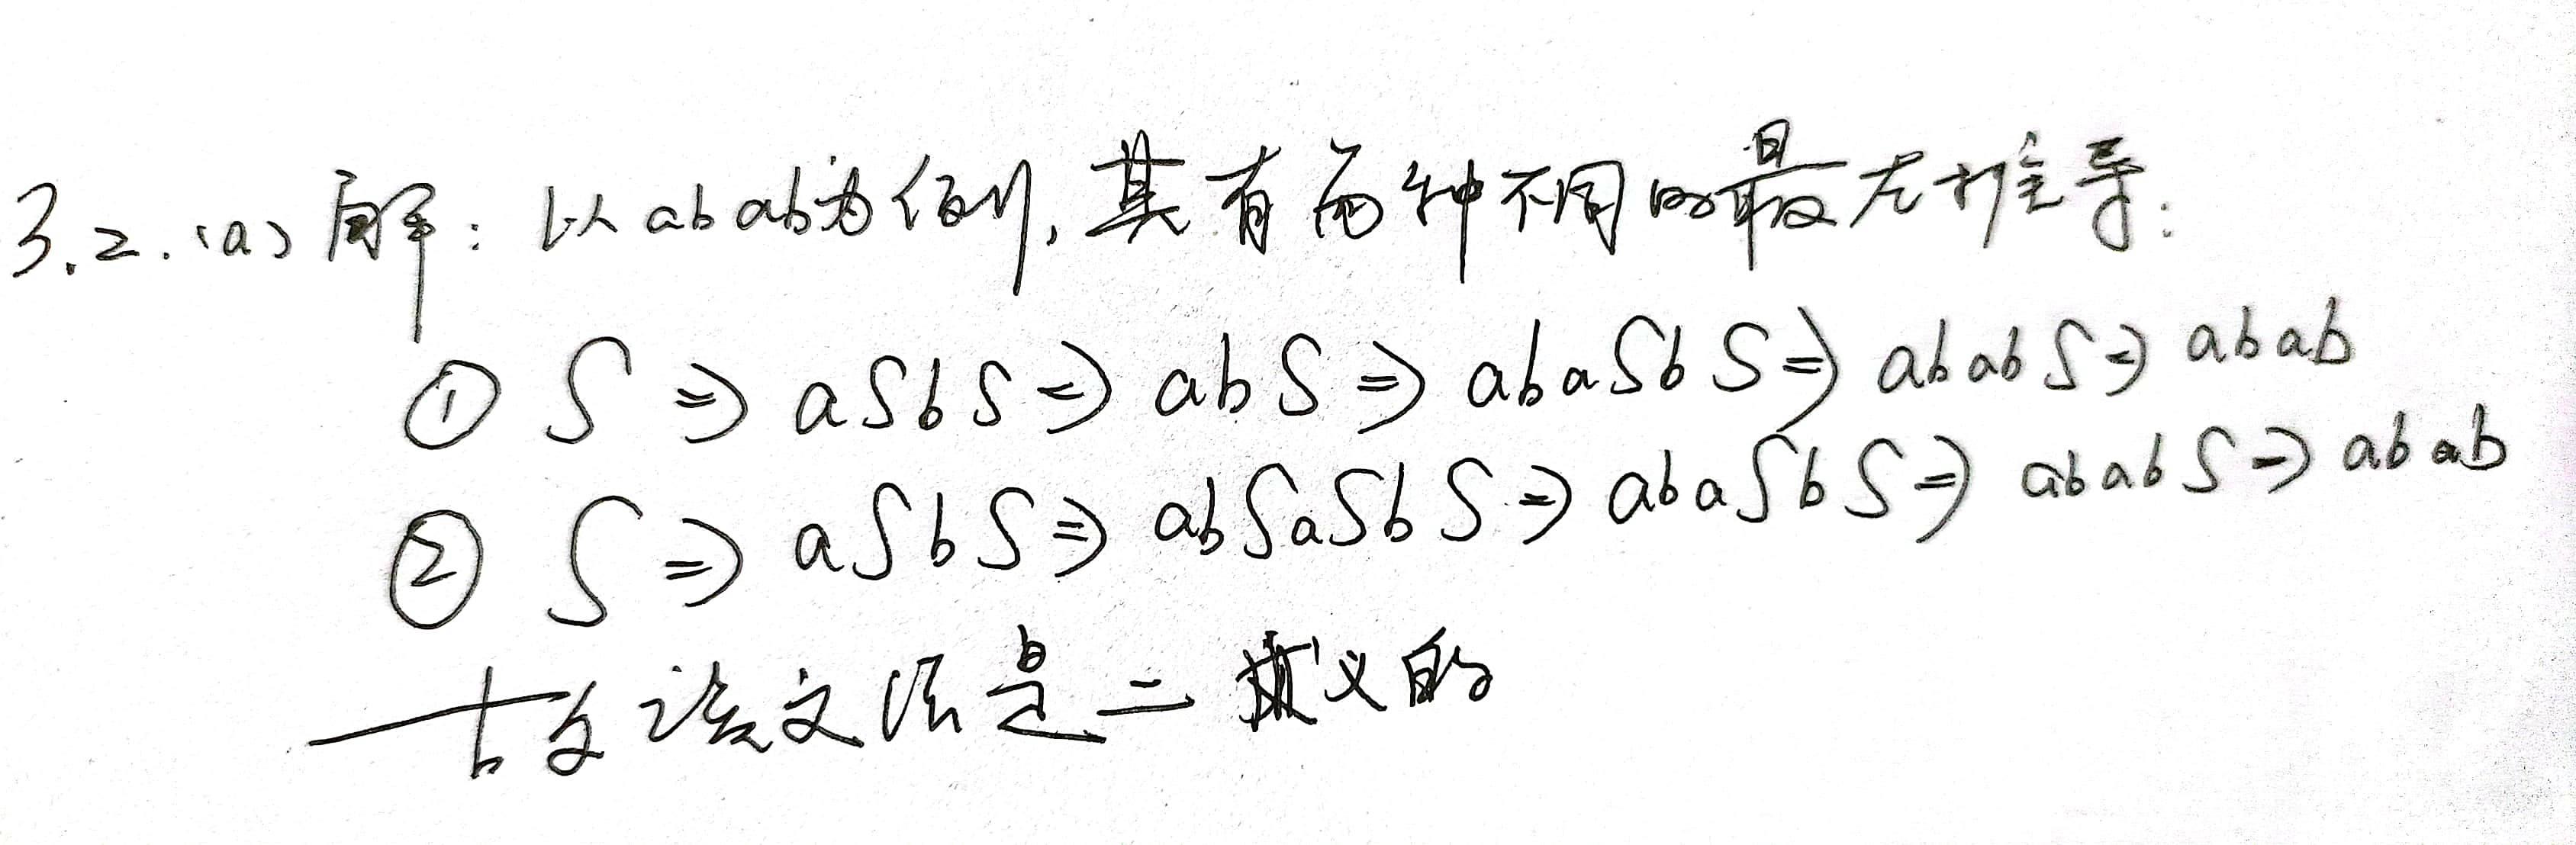 3.2.(a) 解：以abab为例，其有两种不同的最左推导：
① S ⇒ aSbS ⇒ abS ⇒ abaSbS ⇒ ababS ⇒ abab
② S ⇒ aSbS ⇒ abSaSbS ⇒ abaSbS ⇒ ababS ⇒ abab
故该文法是二义的